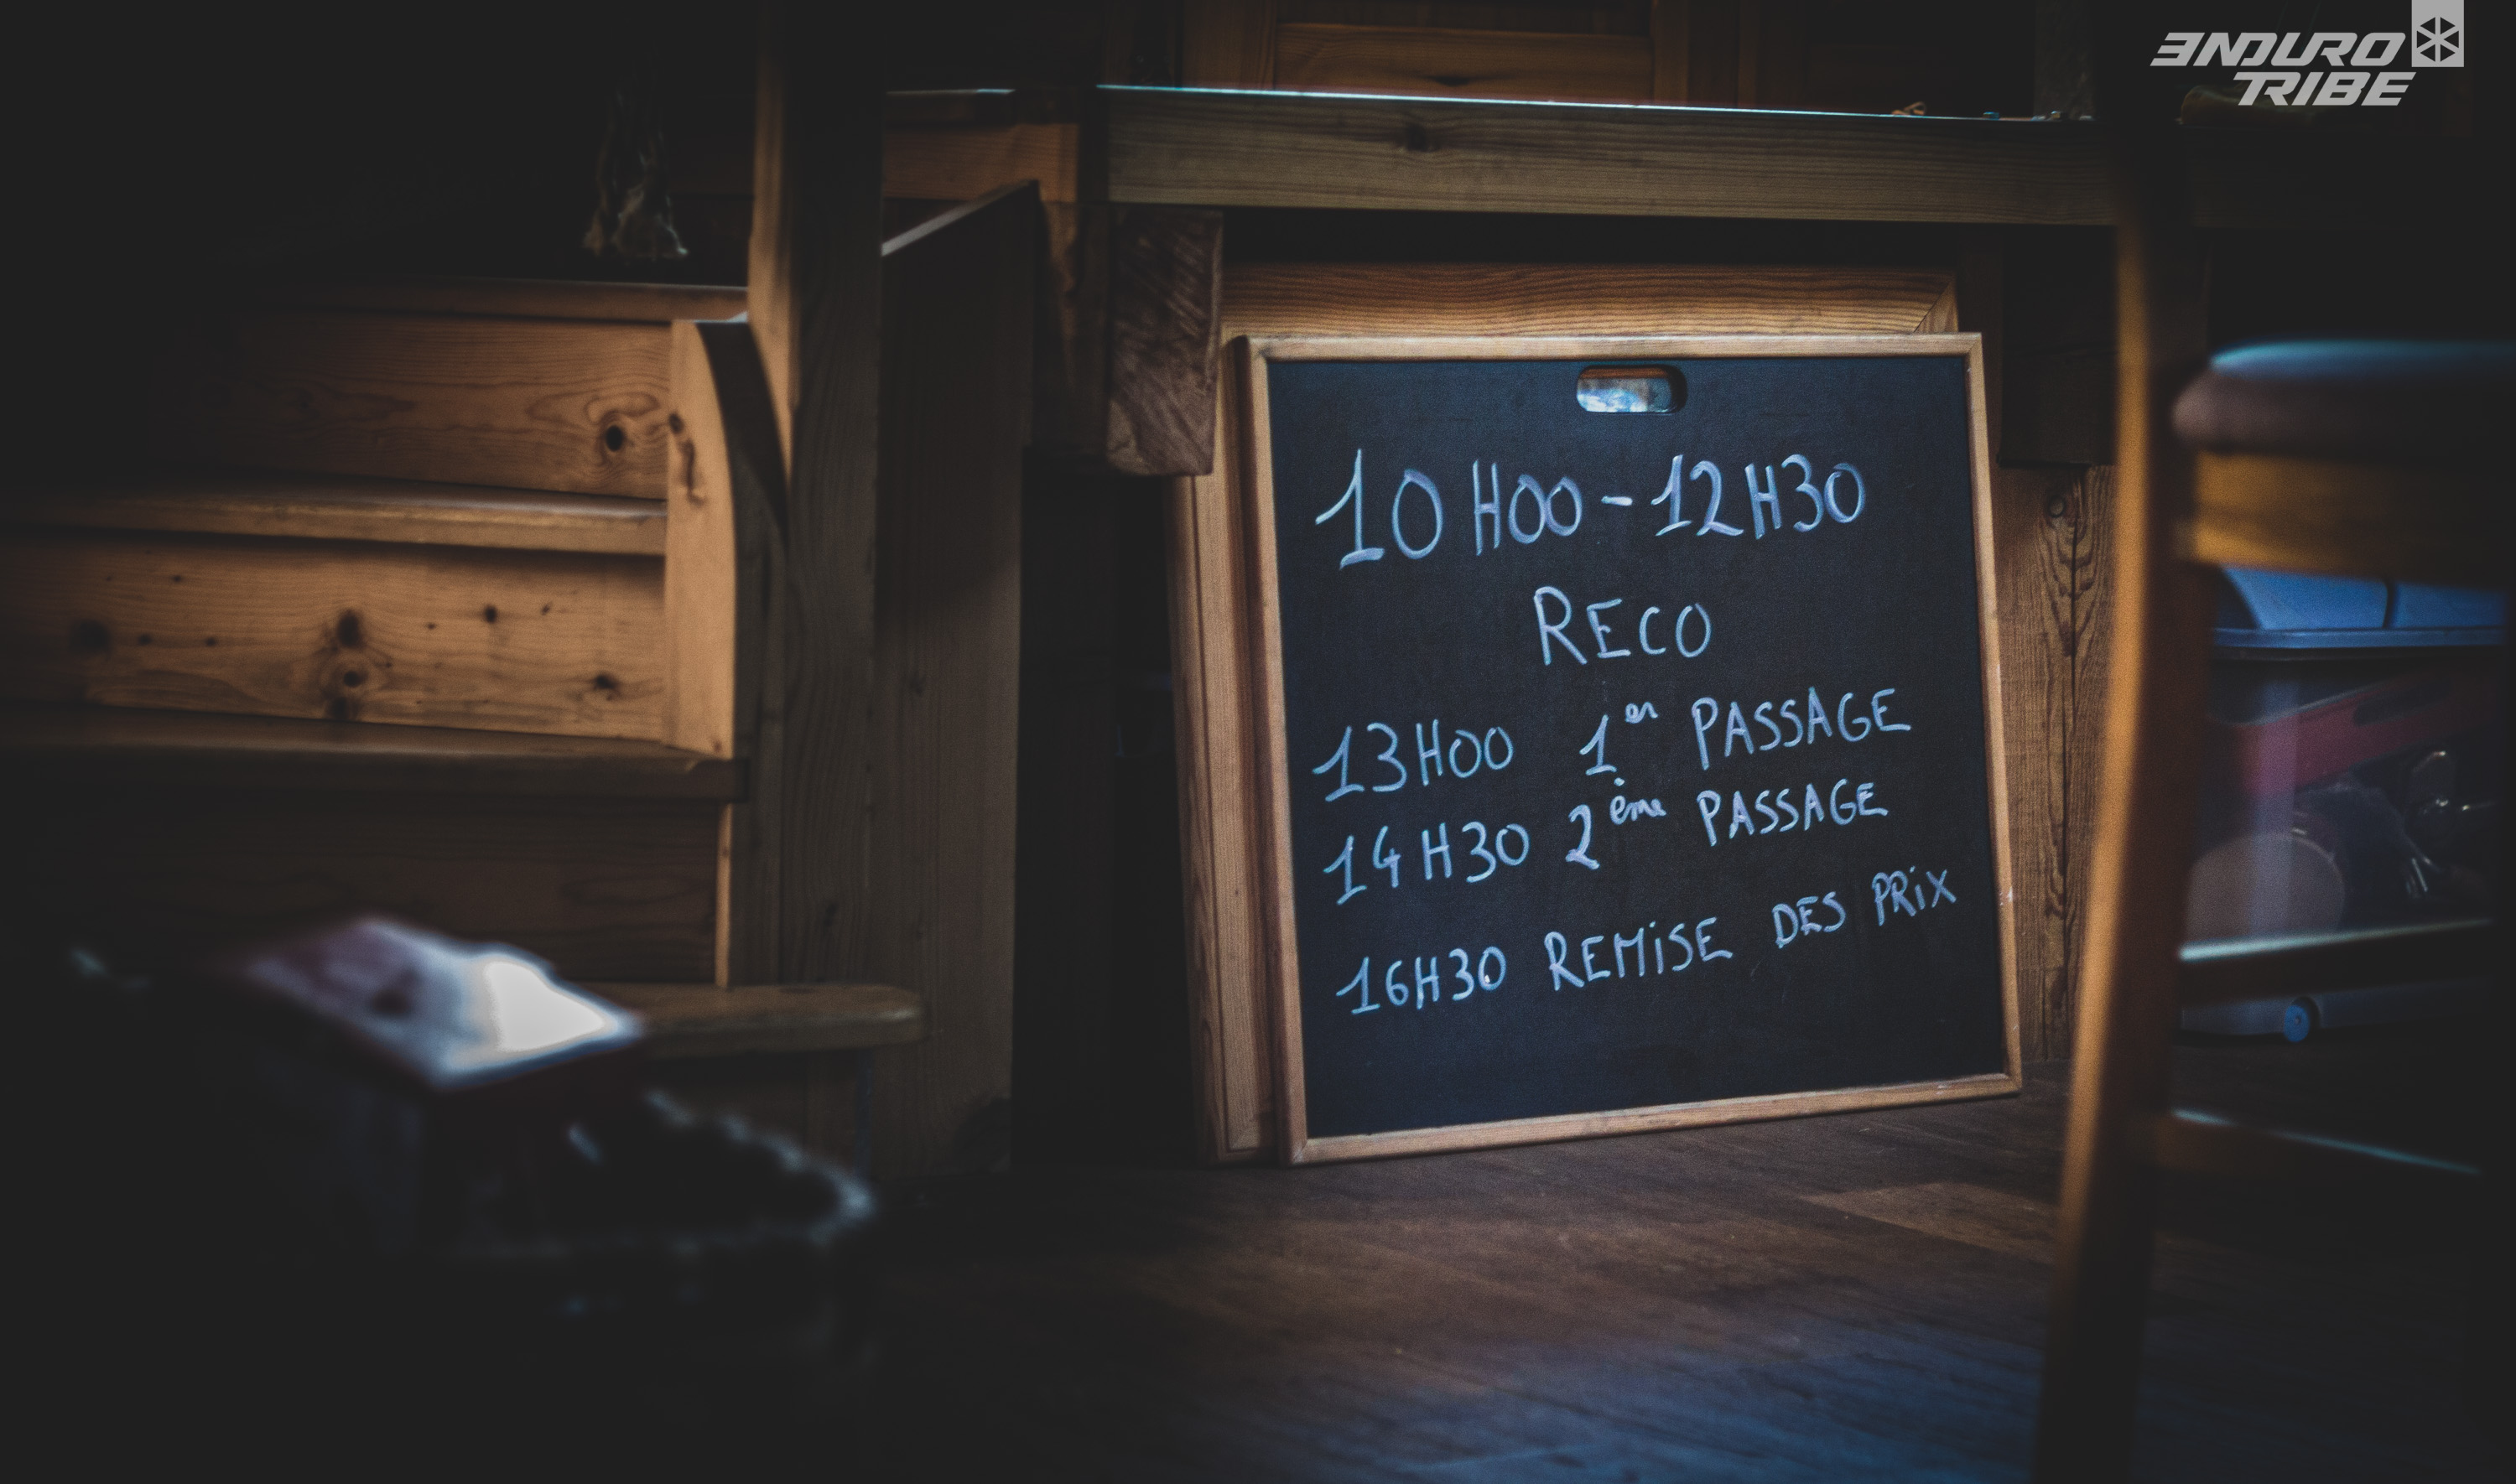 ENDURO
TRIBE
10H00-12H30
RECO
13H00 1er PASSAGE
14H30 2ème PASSAGE
16H30 REMiSE DES PRiX